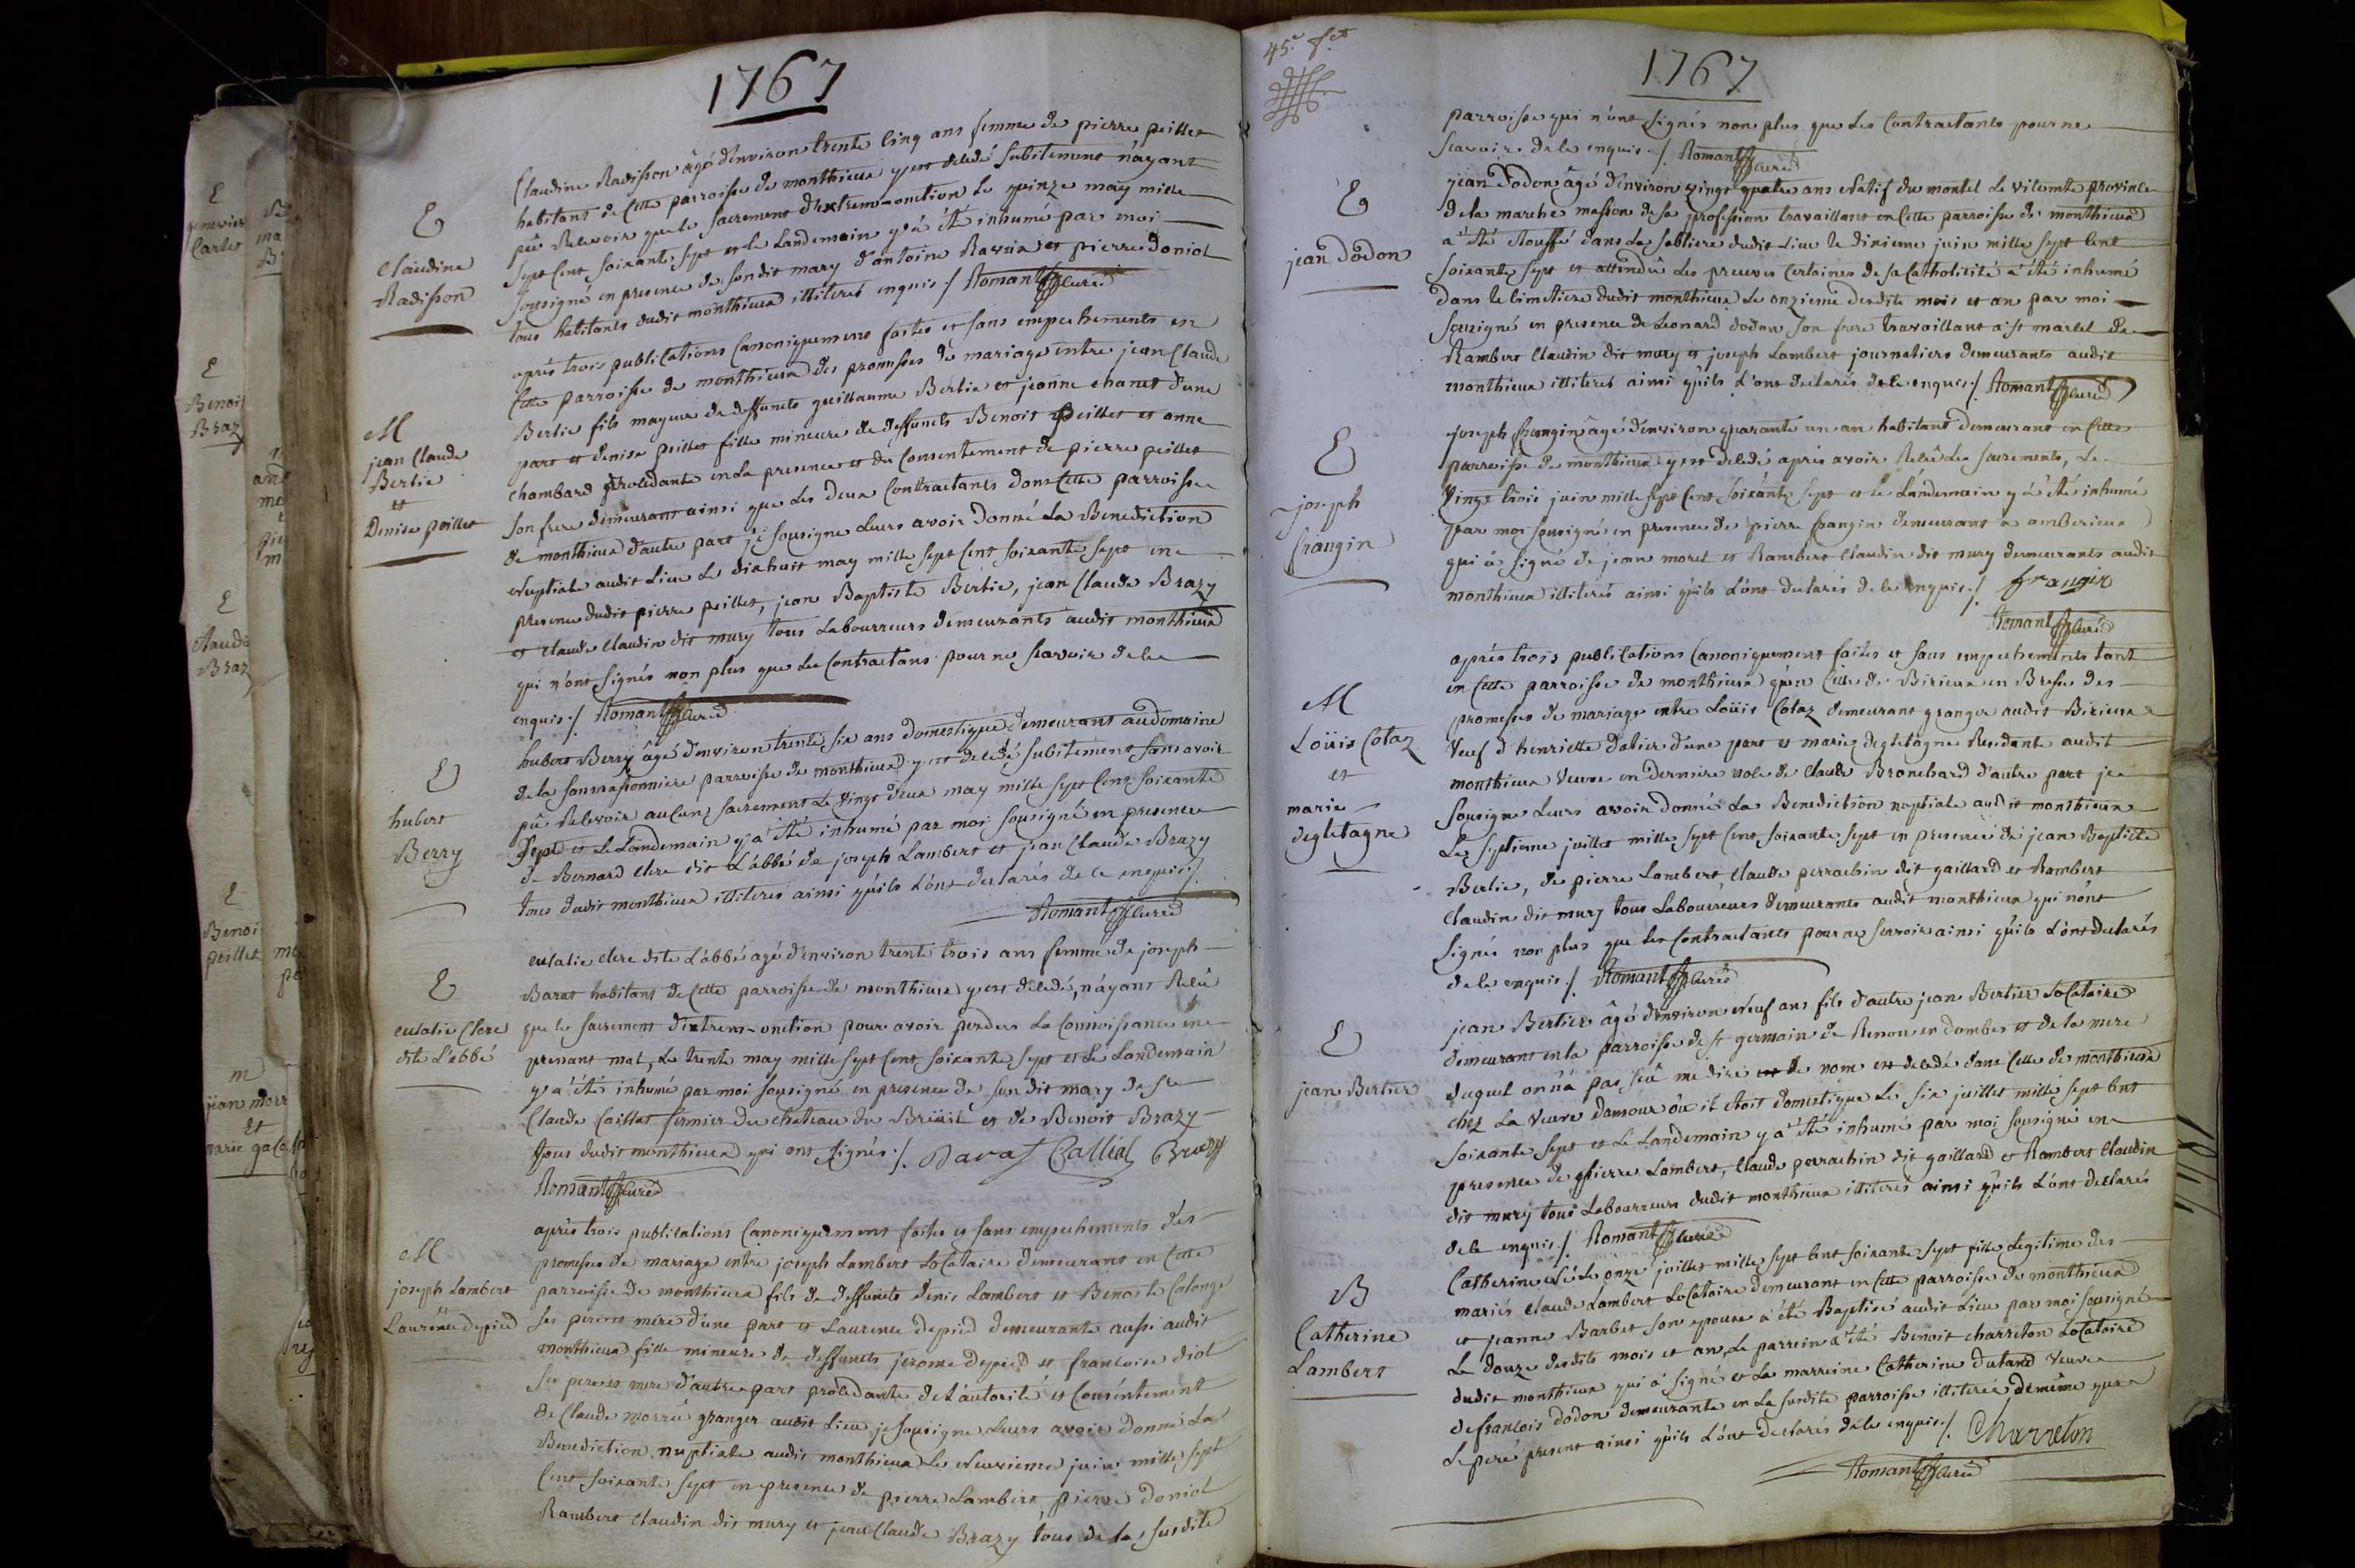 1767
E
Claudine
Radisson
Claudine Radisson agé d'environ trente cinq ans femme de pierre peillet
habitant de Cette parroisse de monthieux y est decedé subitement n'ayant
pû Recevoir que le sacrement d'extrem-onction le quinze may mille
sept Cent soixante sept et le Landemain y a été inhumé par moi
sousigné en presence de sondit mary d'antoine Ravier et pierre doniol
tous habitants dudit monthieux illiterés enquis ./ Romant Curé
M
jean Claude
Berlie
et
Denise peillet
aprés trois publications Canoniquement faites et sans empechements en
Cette parroisse de monthieux des promesses de mariage entre jean Claude
Berlie fils mayeur de deffuncts guillaume Berlie et jeanne chanet d'une
part et denise peillet fille mineure de deffuncts Benoit peillet et anne
chambard procedante en la presence et du Consentement de pierre peillet
son frere demeurant ainsi que les deux Contractants dans Cette parroisse
de monthieux d'autre part je sousigne Leurs avoir donné La Benediction
Nuptiale audit Lieu Le dixhuit may mille sept Cent soixante sept en
presence dudit pierre peillet, jean Baptiste Berlie, jean Claude Brazy
et Claude Claudin dit mury tous Labourreurs demeurants audit monthieux
qui n'ont signés non plus que Les Contractans pour ne scavoir de ce
enquis ./ Romant Curé
E
hubert
Berry
hubert Berry âgé d'environ trente six ans domestique demeurant au domaine
de la parroisse de monthieux y est decedé subitement sans avoir
pû Recevoir aucuns sacrement Le Vingt deux may mille sept Cent soixante
sept et Le Landemain y a été inhumé par moi sousigné en presence
de Bernard Clere dit L'abbé de joseph Lambert et jean Claude Brazy
tous dudit monthieux illiterés ainsi qu'ils L'ont declarés de ce enquis ./
Romant Curé
E
eulalie Clere
dite L'abbé
eulalie clere dite L'abbé agé d'environ trente trois ans femme de joseph
Barat habitant de Cette parroisse de monthieux y est decedé, n'ayant Recû
que le sacrement d'extrem-onction pour avoir perdus La Connoissance en
prenant mal, Le trente may mille sept Cent soixante sept et Le Landemain
y a été inhumé par moi sousigné en presence de sun dit mary de sr
Claude Caillat fermier du chateau du Breüil et de Benoit Brazy
tous dudit monthieux qui ont signés ./. Barat Calliat Brazy
Romant Curé
M
joseph Lambert
et
Laurence depied
aprés trois publications Canoniquement faites et sans empechements des
promesses de mariage entre joseph Lambert Locataire demeurant en Cette
parroisse de monthieux fils de deffuncts denis Lambert et Benoite Colonge
ses pere et mere d'une part et Laurence depied demeurante aussi audit
monthieux fille mineure de deffuncts jerome depied et francoise diot
ses pere et mere d'autre part procedante de L'autorité et Consentement
de Claude granger audit Lieu je sousigne Leurs avoir donné La
Benediction nuptiale audit monthieux Le Neuvieme juin mille sept
Cent soixante sept en presence de pierre Lambert, pierre doniol
Rambert Claudin dit mury et jean Claude Brazy tous de la susdite
45e f.et
1767
parroisse qui n'ont signés non plus que Les Contractants pour ne
scavoir de ce enquis ./ Romant Curé
E
jean Dodon
jean Dodon âgé d'environ vingt quatre ans Natif du montel Le vicomte province
de la marche masson de sa profession travaillant en Cette parroisse de monthieux
a été etouffé dans La sabliere dudit Lieu le dixieme juin mille sept Cent
soixante sept et attendu Les preuves Certaines de sa Catholicité a été inhumé
dans le Cimetiere dudit monthieux Le onzieme desdits mois et an par moi
sousigné en presence de Leonard dodon son frere travaillant a st marcel de
Rambert Claudin dit mury et joseph Lambert journaliers demeurants audit
monthieux illiterés ainsi qu'ils L'ont declarés de ce enquis ./ Romant Curé
E
joseph
frangin
joseph frangin âgé d'environ quarante un an habitant demeurant en Cette
parroisse de monthieux y est decedé aprés avoir Recû Les sacrements, Le
Vingt trois juin mille sept Cent soixante sept et le Landemain y a été inhumé
par moi sousigné en presence de pierre frangin demeurant a amberieux
qui a signé de jean morel et Rambert Claudin dit mury demeurants audit
monthieux illiterés ainsi qu'ils L'ont declarés de ce enquis ./. frangin
Romant Curé
M
Loüis Cotaz
et
marie
degletagne
aprés trois publications Canoniquement faites et sans empechements tant
en Cette parroisse de monthieux qu'en Celle de Birieux en Bresse des
promesses de mariage entre Loüis Cotaz demeurant granger audit Birieux
Veuf d'henriette d'une part et marie degletagne Residante audit
monthieux Veuve en derniere noce de Claude Bronchard d'autre part je
sousigne Leurs avoir donné La Benediction nuptiale audit monthieux
Le septieme juillet mille sept Cent soixante sept en presence de jean Baptiste
Berlie, de pierre Lambert, Claude perrachin dit gaillard et Rambert
Claudin dit mury tous Labourreurs demeurants audit monthieux qui n'ont
signés non plus que les Contractants pour ne scavoir ainsi qu'ils L'ont declarés
de ce enquis ./ Romant Curé
E
jean Bertier
jean Bertier âgé d'environ Neuf ans fils d'autre jean Bertier Locataire
demeurant en la parroisse de st germain de Renon en dombes et de la mere
duquel on n'a pas scû me dire le nom est decedé dans Celle de monthieux
chez La Veuve damour où il étoit domestique Le six juillet mille sept Cent
soixante sept et Le Landemain y a été inhumé par moi sousigné en
presence de pierre Lambert, Claude perrachin dit gaillard et Rambert Claudin
dit mury tous Labourreurs dudit monthieux illiterés ainsi qu'ils L'ont declarés
de ce enquis ./ Romant Curé
B
Catherine
Lambert
Catherine Née Le onze juillet mille sept Cent soixante sept fille Legitime des
mariés Claude Lambert Locataire demeurant en Cette parroisse de monthieux
et jeanne Barbet son epouse a été Baptisé audit Lieu par moi sousigné
Le douze desdits mois et an, Le parrein a été Benoit charreton Locataire
dudit monthieux qui a signé et La marreine Catherine dutand Veuve
de francois dodon demeurante en La susdite parroisse illiterée de même que
Le pere present ainsi qu'ils L'ont declarés de ce enquis ./. Charreton
Romant Curé